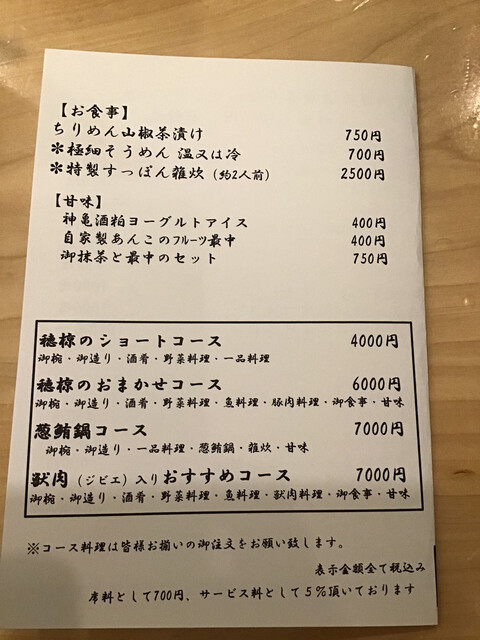 【お食事】
ちりめん山椒茶漬け 750円
＊極細そうめん 温又は冷 700円
＊特製すっぽん雑炊（約2人前） 2500円
【甘味】
神亀酒粕ヨーグルトアイス 400円
自家製あんこのフルーツ最中 400円
御抹茶と最中のセット 750円
穂椋のショートコース 4000円
御椀・御造り・酒肴・野菜料理・一品料理
穂椋のおまかせコース 6000円
御椀・御造り・酒肴・野菜料理・魚料理・豚肉料理・御食事・甘味
葱鮪鍋コース 7000円
御椀・御造り・一品料理・葱鮪鍋・雑炊・甘味
獣肉（ジビエ）入りおすすめコース 7000円
御椀・御造り・酒肴・野菜料理・魚料理・獣肉料理・御食事・甘味
※コース料理は皆様お揃いの御注文をお願い致します。
表示金額全て税込み
席料として700円、サービス料として5％頂いております